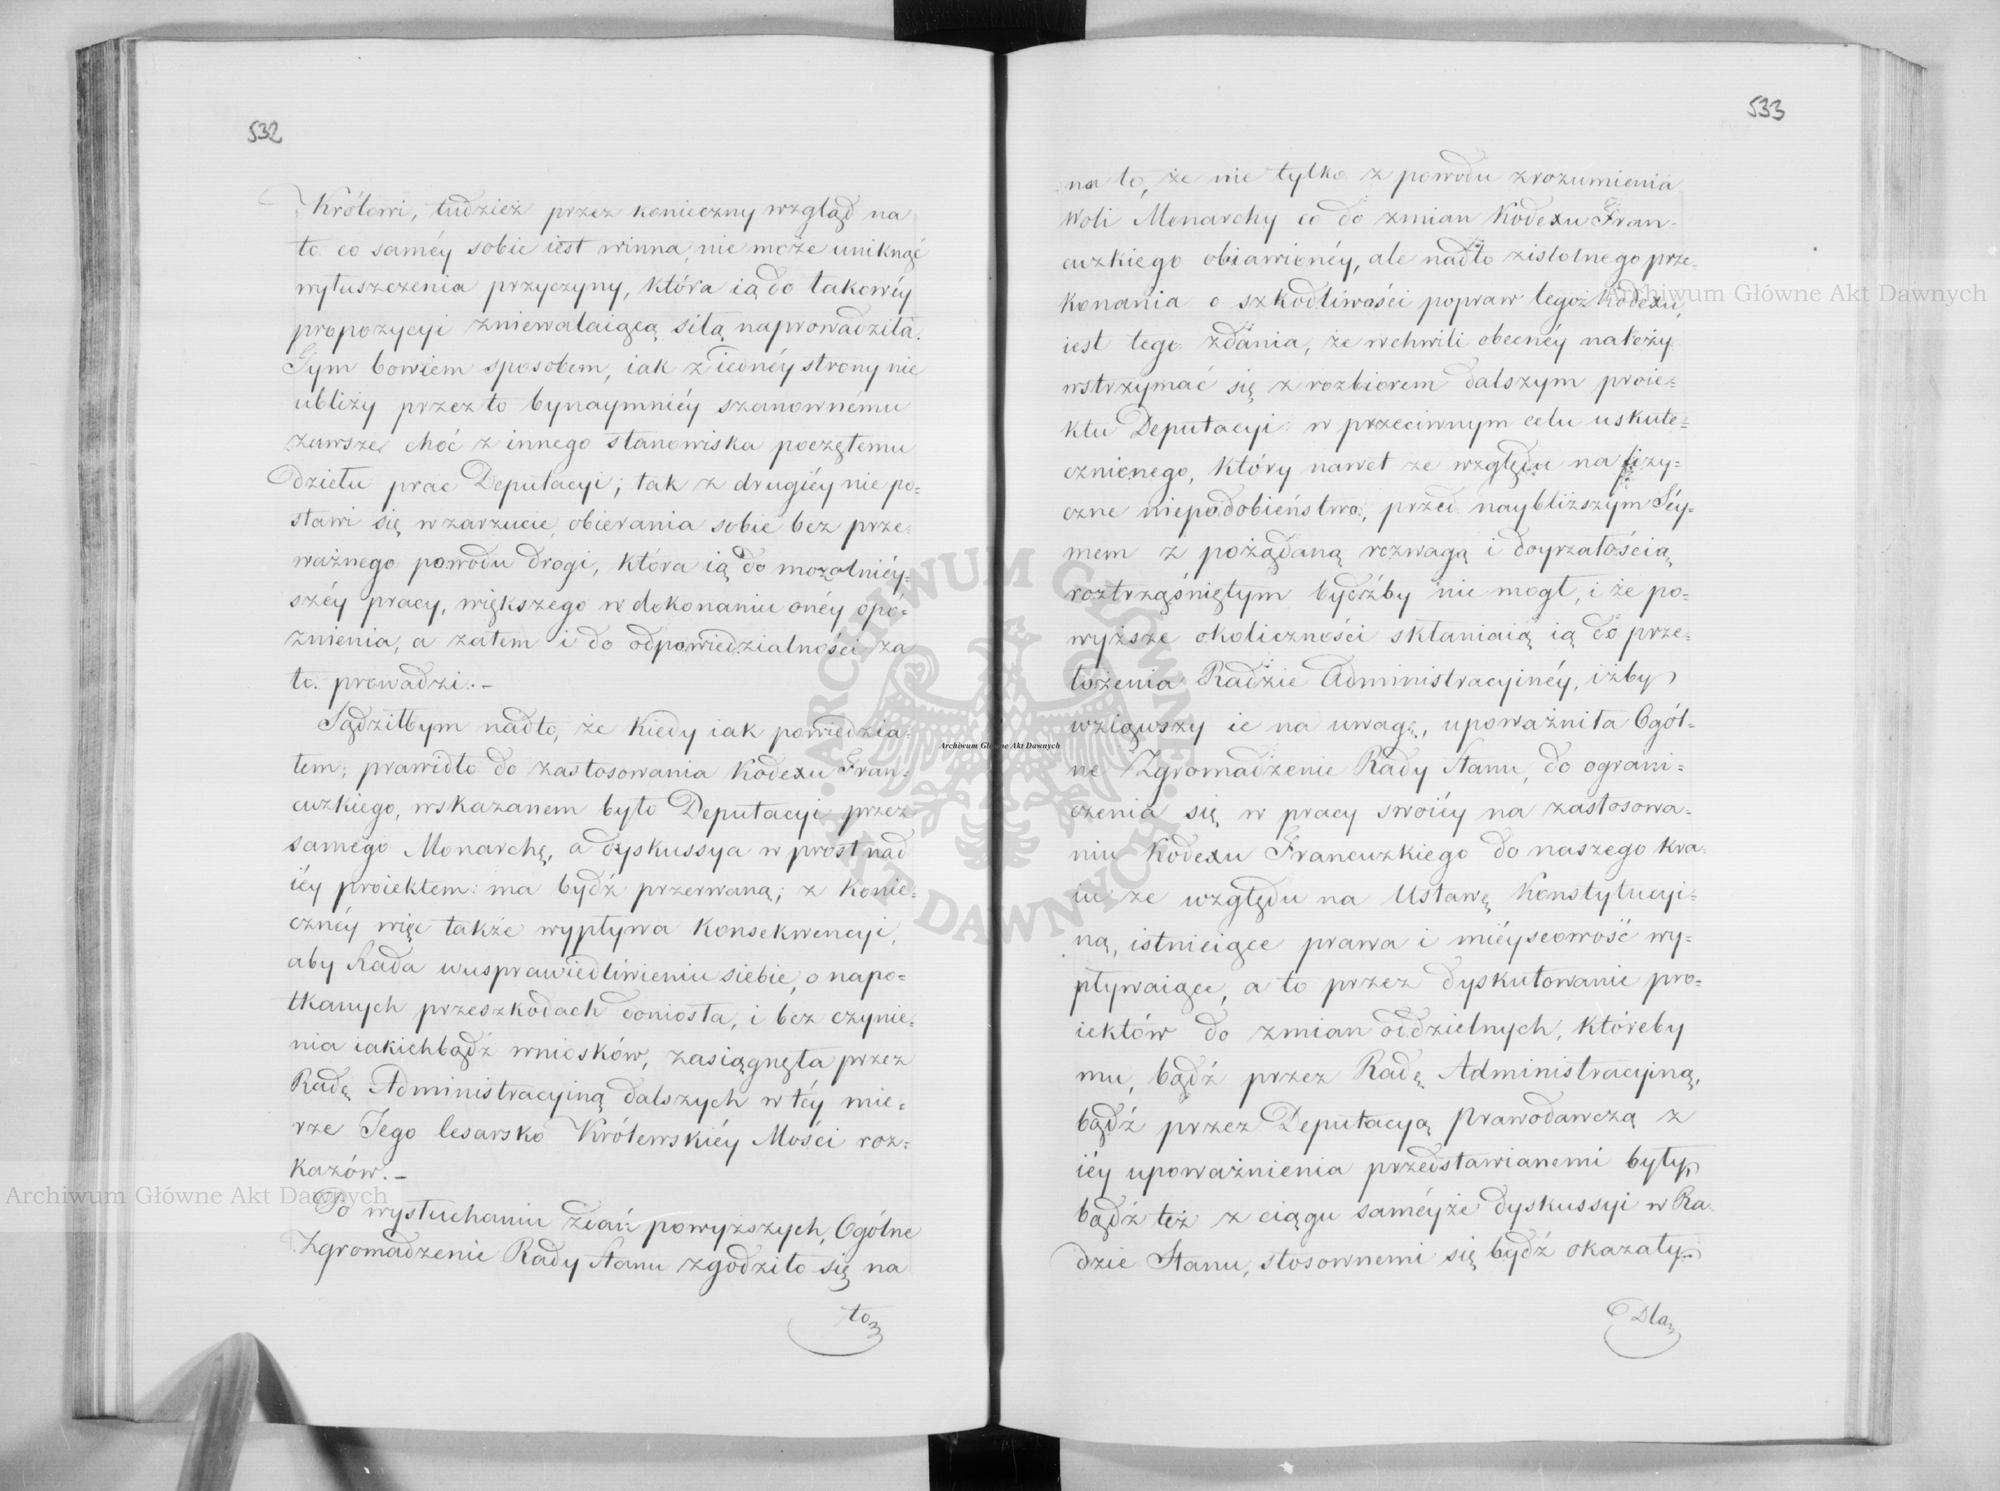 532
Królowi, tudzież przez konieczny wzgląd na
to co saméy sobie iest winna, nie może uniknąć
wyłuszczenia przyczyny, która ią do takowéy
propozycyi zniewalaiącą siłą naprowadziła.
Tym bowiem sposobem, iak z iednéy strony nie
ubliży przez to bynaymniéy szanownému
zawsze, choć z innego stanowiska poczętemu
dziełu prac Deputacyi; tak z drugiéy nie po=
stawi się w zarzucie, obierania sobie bez prze=
ważnego powodu drogi, która ią do mozolniéy=
széy pracy, większego w dokonaniu onéy opó=
źnienia, a zatem i do odpowiedzialności za
to prowadzi.–
Sądziłbym nadto, że kiedy iak powiedzia=
łem; prawidło do zastosowania Kodexu Fran=
cuzkiego, wskazanem było Deputacyi przez
samego Monarchę, a dyskussya w prost nad
iéy proiektem: ma bydź przerwaną; z konie=
cznéy więc także wypływa konsekwencyi,
aby Rada w usprawiedliwieniu siebie, o napo=
tkanych przeszkodach doniosła, i bez czynie=
nia iakichbądź wniosków, zasiągnęła przez
Radę Administracyiną dalszych w téy mie=
rze Jego Cesarsko Królewskiéy Mości roz=
kazów.–
Po wysłuchaniu zdań powyższych, Ogólne
Zgromadzenie Rady Stanu zgodziło się na
to
533
na to, że nie tylko z powodu zrozumienia
Woli Monarchy co do zmian Kodexu Fran=
cuzkiego obiawionéy, ale nadto z istotnego prze=
konania o szkodliwości popraw tegoż Kodexu,
iest tego zdania, że w chwili obecnéy należy
wstrzymać się z rozbiorem dalszym proie=
ktu Deputacyi: w przeciwnym celu uskute=
cznionego, który nawet ze względu na fizy=
czne niepodobieństwo, przed naybliższym Séy=
mem z pożądaną rozwagą i doyrzałością
roztrząśniętym bydźby nie mogł, i że po=
wyższe okoliczności skłaniaią ią do prze=
łożenia Radzie Administracyinéy, iżby
wziąwszy ie na uwagę, upoważniła Ogól=
ne Zgromadzenie Rady Stanu, do ograni=
czenia się w pracy swoiéy na zastosowa=
niu Kodexu Francuzkiego do naszego kra=
iu ze względu na Ustawę Konstytucyi=
ną, istnieiące prawa i miéyscowość wy=
pływaiące, a to przez dyskutowanie pro=
iektów do zmian oddzielnych, któreby
mu, bądź przez Radę Administracyiną,
bądź przez Deputacyą Prawodawczą z
iéy upoważnienia przedstawianemi były,
bądź też z ciągu saméyże dyskussyi w Ra=
dzie Stanu, stosownemi się bydź okazały.
Dla
Archiwum Główne Akt Dawnych
Archiwum Główne Akt Dawnych
Archiwum Główne Akt Dawnych
ARCHIWUM GŁÓWNE AKT DAWNYCH